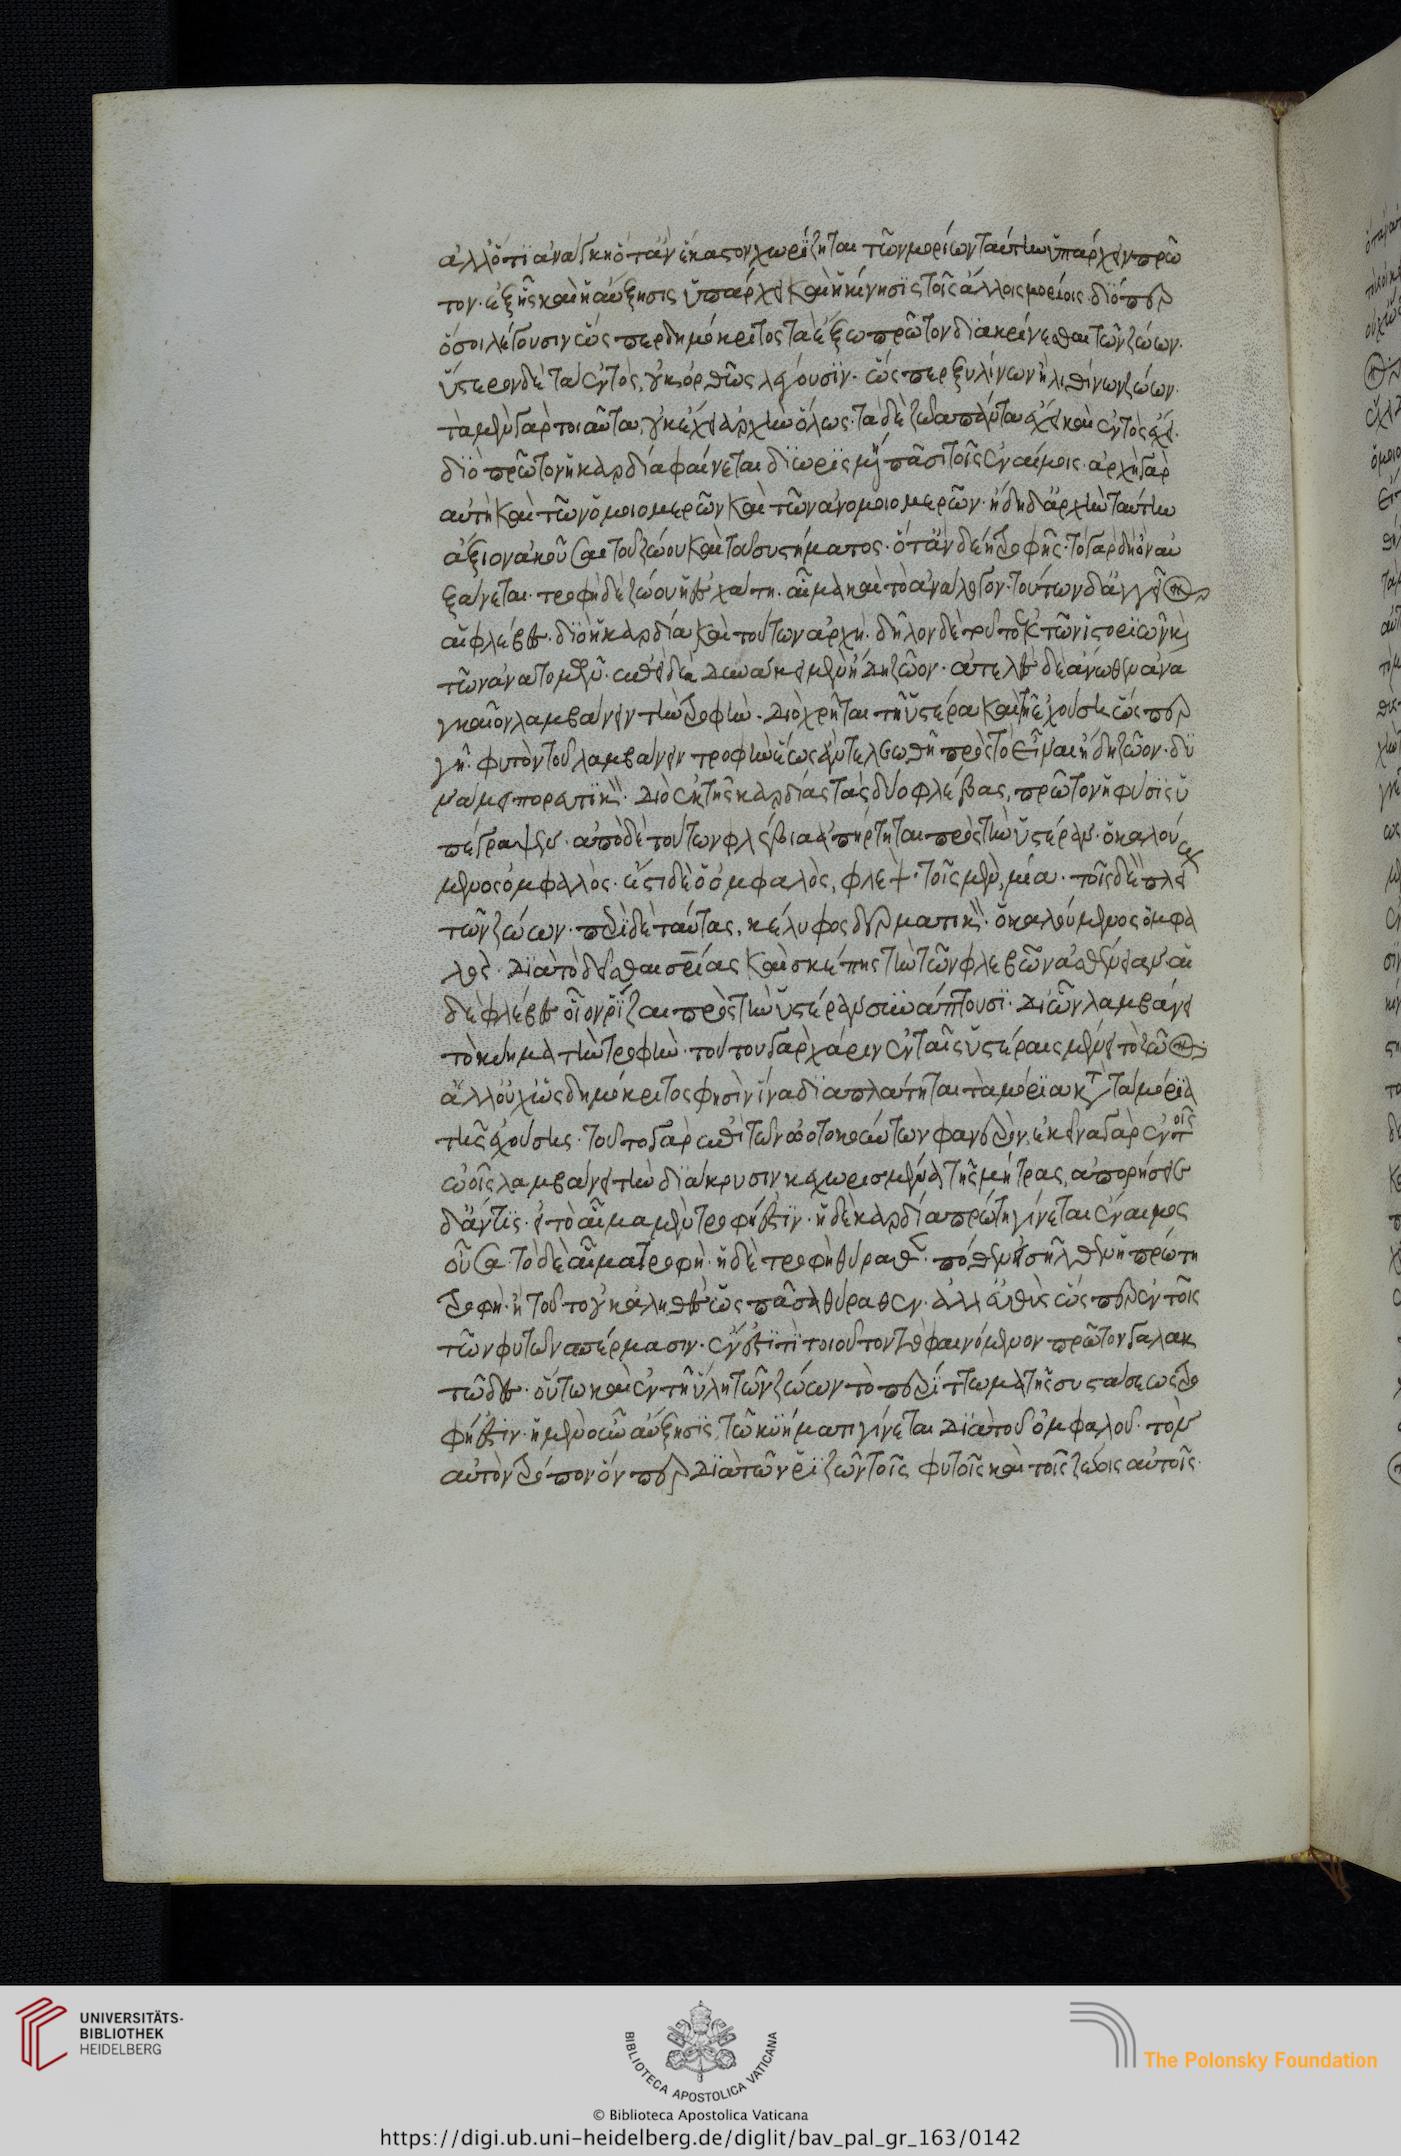 ἀλλ' ὅτι ἀνάγκη ὅταν ἕκαστον χωρίζηται τῶν μορίων ταύτην ὑπάρχειν πρῶ
τον· ἐξ ἧς καὶ ἡ αὔξησις ὑπάρχει καὶ ἡ κίνησις τοῖς ἄλλοις μορίοις· διόπερ
ὅσοι λέγουσιν ὥσπερ δημόκριτος τὰ ἔξω πρῶτον διακρίνεσθαι τῶν ζώων·
ὕστερον δὲ τὰ ἐντὸς, οὐκ ὀρθῶς λέγουσιν· ὥσπερ ξυλίνων ἢ λιθίνων ζώων·
τὰ μὲν γὰρ τοιαῦτα, οὐκ ἔχει ἀρχὴν ὅλως· τὰ δὲ ζῶα πάντα ἔχει καὶ ἐντὸς ἔχει·
διὸ πρῶτον ἡ καρδία φαίνεται διωρισμένη πᾶσι τοῖς ἐναίμοις· ἀρχὴ γὰρ
αὐτὴ καὶ τῶν ὁμοιομερῶν καὶ τῶν ἀνομοιομερῶν· ἤδη δ' ἀρχὴν ταύτην
ἄξιον ἀκοῦσαι τοῦ ζώου καὶ τοῦ συστήματος· ὅταν δέη τροφῆς· τὸ γὰρ δὴ ὂν αὐ
ξάνεται· τροφὴ δὲ ζώου ἡ ἐσχάτη· αἷμα καὶ τὸ ἀνάλογον· τούτων δ' ἀγγεῖ
αἱ φλέβες· διὸ ἡ καρδία καὶ τούτων ἀρχή· δῆλον δὲ τοῦτο ἐκ τῶν ἱστοριῶν καὶ
τῶν ἀνατομῶν· ἐπεὶ δὲ δυνάμει μὲν ἤδη ζῶον· ἀτελὲς δὲ ἄνωθεν ἀνα
γκαῖον λαμβάνειν τὴν τροφὴν· διὸ χρῆται τῆ ὑστέρα καὶ τῆ ἐχούση ὥσπερ
γῆ· φυτὸν τοῦ λαμβάνειν τροφὴν ἕως ἂν τελεωθῆ πρὸς τὸ εἶναι ἤδη ζῶον· δυ
νάμει πορευτικὸν· διὸ ἐκ τῆς καρδίας τὰς δύο φλέβας, πρῶτον ἡ φύσις ὑ
πέγραψεν· ἀπὸ δὲ τούτων φλέβια ἀπήρτηται πρὸς τὴν ὑστέραν· ὁ καλού
μενος ὀμφαλὸς· ἔστι δὲ ὁ ὀμφαλὸς, φλεψ· τοῖς μὲν, μία· τοῖς δὲ πλεί
τῶν ζώων· περὶ δὲ ταύτας, κέλυφος δερματικὸν· ὁ καλούμενος ὀμφα
λὸς· διὰ τὸ δεῖσθαι σωτηρίας καὶ σκέπης τὴν τῶν φλεβῶν ἀσθένειαν· αἱ
δὲ φλέβες οἷον ῥίζαι πρὸς τὴν ὑστέραν συνάπτουσι· δι' ὧν λαμβάνει
τὸ κύημα τὴν τροφὴν· τούτου γὰρ χάριν ἐν ταῖς ὑστέραις μένει τὸ ζῶον
ἀλλ' οὐχ ὡς δημόκριτος φησὶν ἵνα διαπλάττηται τὰ μόρια κατὰ τὰ μόρια
τῆς ἐχούσης· τοῦτο γὰρ ἐπὶ τῶν ὠοτοκούντων φανερὸν, ἐκεῖνα γὰρ ἐν τοῖς
ὠοῖς λαμβάνει τὴν διάκρυσιν κεχωρισμένα τῆς μήτρας, ἀπορήσειε
δ' ἄν τις· εἰ τὸ αἷμα μὲν τροφή ἐστιν· ἡ δὲ καρδία πρώτη γίνεται ἔναιμος
οὖσα· τὸ δὲ αἷμα τροφὴ· ἡ δὲ τροφὴ θύραθεν· πόθεν εἰσῆλθεν ἡ πρώτη
τροφὴ· ἢ τοῦτο οὐκ ἀληθὲς ὡς πᾶσα θύραθεν· ἀλλ' εὐθὺς ὥσπερ ἐν τοῖς
τῶν φυτῶν σπέρμασιν· ἔνεστί τι τοιοῦτον τὸ φαινόμενον πρῶτον γαλακ
τῶδες· οὕτω καὶ ἐν τῆ ὕλη τῶν ζώων τὸ περίττωμα τῆς συστάσεως τρο
φή ἐστιν· ἡ μὲν οὖν αὔξησις, τῶ κυήματι γίνεται διὰ τοῦ ὀμφαλοῦ· τὸν
αὐτὸν τρόπον ὅν περ διὰ τῶν ῥιζῶν τοῖς φυτοῖς καὶ τοῖς ζώοις αὐτοῖς·
UNIVERSITÄTS-
BIBLIOTHEK
HEIDELBERG
BIBLIOTECA APOSTOLICA VATICANA
The Polonsky Foundation
© Biblioteca Apostolica Vaticana
https://digi.ub.uni-heidelberg.de/diglit/bav_pal_gr_163/0142